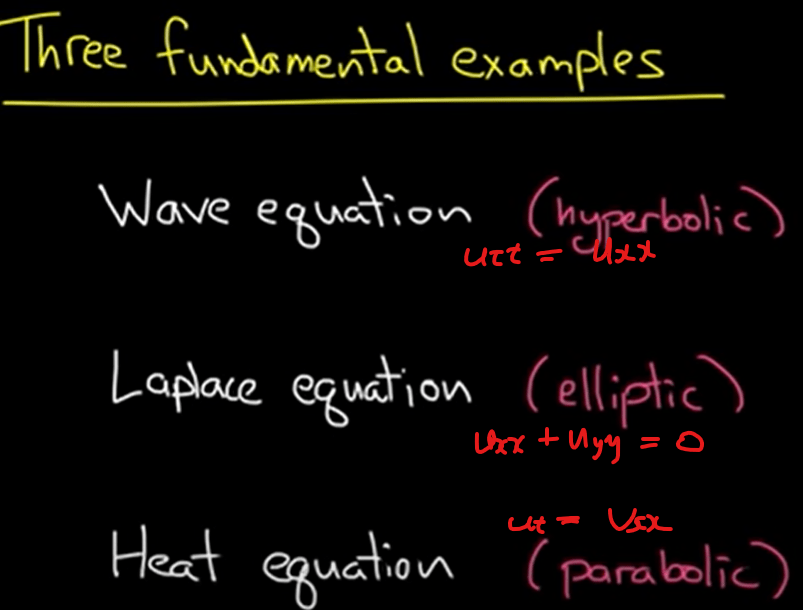 Three fundamental examples
Wave equation (hyperbolic)
utt = uxx
Laplace equation (elliptic)
uxx + uyy = 0
ut = uxx
Heat equation (parabolic)